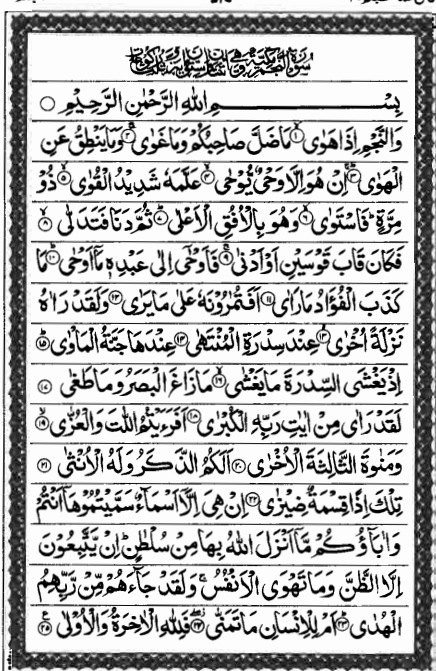 بِسْمِ اللهِ الرَّحْمٰنِ الرَّحِيْمِ ○
وَالنَّجْمِ اِذَا هَوٰى ۙ۱ مَا ضَلَّ صَاحِبُكُمْ وَمَا غَوٰى ۚ۲ وَمَا يَنْطِقُ عَنِ
الْهَوٰى ؕ۳ اِنْ هُوَ اِلَّا وَحْىٌ يُّوْحٰى ۙ۴ عَلَّمَهٗ شَدِيْدُ الْقُوٰى ۙ۵ ذُوْ
مِرَّةٍ ؕ فَاسْتَوٰى ۙ۶ وَهُوَ بِالْاُفُقِ الْاَعْلٰى ؕ۷ ثُمَّ دَنَا فَتَدَلّٰى ۙ۸
فَكَانَ قَابَ قَوْسَيْنِ اَوْ اَدْنٰى ۚ۹ فَاَوْحٰۤى اِلٰى عَبْدِهٖ مَاۤ اَوْحٰى ؕ۱۰ مَا
كَذَبَ الْفُؤَادُ مَا رَاٰى ۱۱ اَفَتُمٰرُوْنَهٗ عَلٰى مَا يَرٰى ۱۲ وَلَقَدْ رَاٰهُ
نَزْلَةً اُخْرٰى ۙ۱۳ عِنْدَ سِدْرَةِ الْمُنْتَهٰى ۱۴ عِنْدَهَا جَنَّةُ الْمَاْوٰى ؕ۱۵
اِذْ يَغْشَى السِّدْرَةَ مَا يَغْشٰى ۙ۱۶ مَا زَاغَ الْبَصَرُ وَمَا طَغٰى ۱۷
لَقَدْ رَاٰى مِنْ اٰيٰتِ رَبِّهِ الْكُبْرٰى ۱۸ اَفَرَءَيْتُمُ اللّٰتَ وَالْعُزّٰى ۙ۱۹
وَمَنٰوةَ الثَّالِثَةَ الْاُخْرٰى ۲۰ اَلَكُمُ الذَّكَرُ وَلَهُ الْاُنْثٰى ۲۱
تِلْكَ اِذًا قِسْمَةٌ ضِيْزٰى ۲۲ اِنْ هِىَ اِلَّاۤ اَسْمَآءٌ سَمَّيْتُمُوْهَاۤ اَنْتُمْ
وَاٰبَآؤُكُمْ مَّاۤ اَنْزَلَ اللهُ بِهَا مِنْ سُلْطٰنٍ ؕ اِنْ يَّتَّبِعُوْنَ
اِلَّا الظَّنَّ وَمَا تَهْوَى الْاَنْفُسُ ۚ وَلَقَدْ جَآءَهُمْ مِّنْ رَّبِّهِمُ
الْهُدٰى ؕ۲۳ اَمْ لِلْاِنْسَانِ مَا تَمَنّٰى ۖ۲۴ فَلِلّٰهِ الْاٰخِرَةُ وَالْاُوْلٰى ۲۵